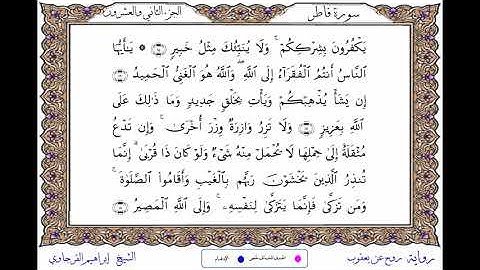 سورة فاطر
الجزء الثاني والعشرون
يَكْفُرُونَ بِشِرْكِكُمْ ۚ وَلَا يُنَبِّئُكَ مِثْلُ خَبِيرٍ ۞ يَٰٓأَيُّهَا
النَّاسُ أَنتُمُ الْفُقَرَآءُ إِلَى اللَّهِ ۖ وَاللَّهُ هُوَ الْغَنِيُّ الْحَمِيدُ
إِن يَشَأْ يُذْهِبْكُمْ وَيَأْتِ بِخَلْقٍ جَدِيدٍ وَمَا ذَٰلِكَ عَلَى
اللَّهِ بِعَزِيزٍ وَلَا تَزِرُ وَازِرَةٌ وِزْرَ أُخْرَىٰ ۚ وَإِن تَدْعُ
مُثْقَلَةٌ إِلَىٰ حِمْلِهَا لَا يُحْمَلْ مِنْهُ شَيْءٌ وَلَوْ كَانَ ذَا قُرْبَىٰ ۗ إِنَّمَا
تُنذِرُ الَّذِينَ يَخْشَوْنَ رَبَّهُم بِالْغَيْبِ وَأَقَامُوا الصَّلَوٰةَ ۚ
وَمَن تَزَكَّىٰ فَإِنَّمَا يَتَزَكَّىٰ لِنَفْسِهِ ۚ وَإِلَى اللَّهِ الْمَصِيرُ
رواية روح عن يعقوب
الإدغام
الشيخ إبراهيم الفرجاوي